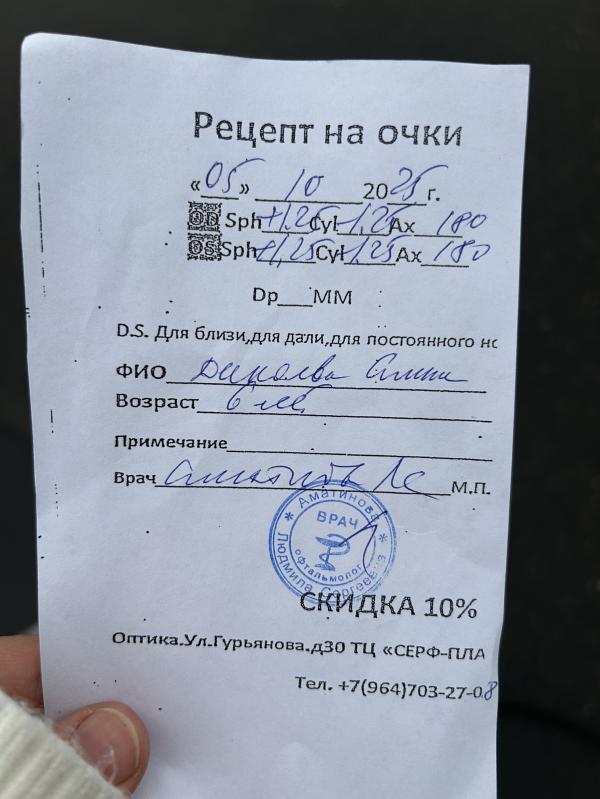 Рецепт на очки
«05» 10 2025 г.
OD Sph +1,25 Cyl -1,25 Ax 180
OS Sph +1,25 Cyl -1,25 Ax 180
Dp___ММ
D.S. Для близи,для дали,для постоянного но
ФИО
Возраст 6 лет
Примечание
Врач М.П.
Аматинова
ВРАЧ
офтальмолог
Людмила Сергеевна
СКИДКА 10%
Оптика.Ул.Гурьянова.д30 ТЦ «СЕРФ-ПЛА
Тел. +7(964)703-27-08